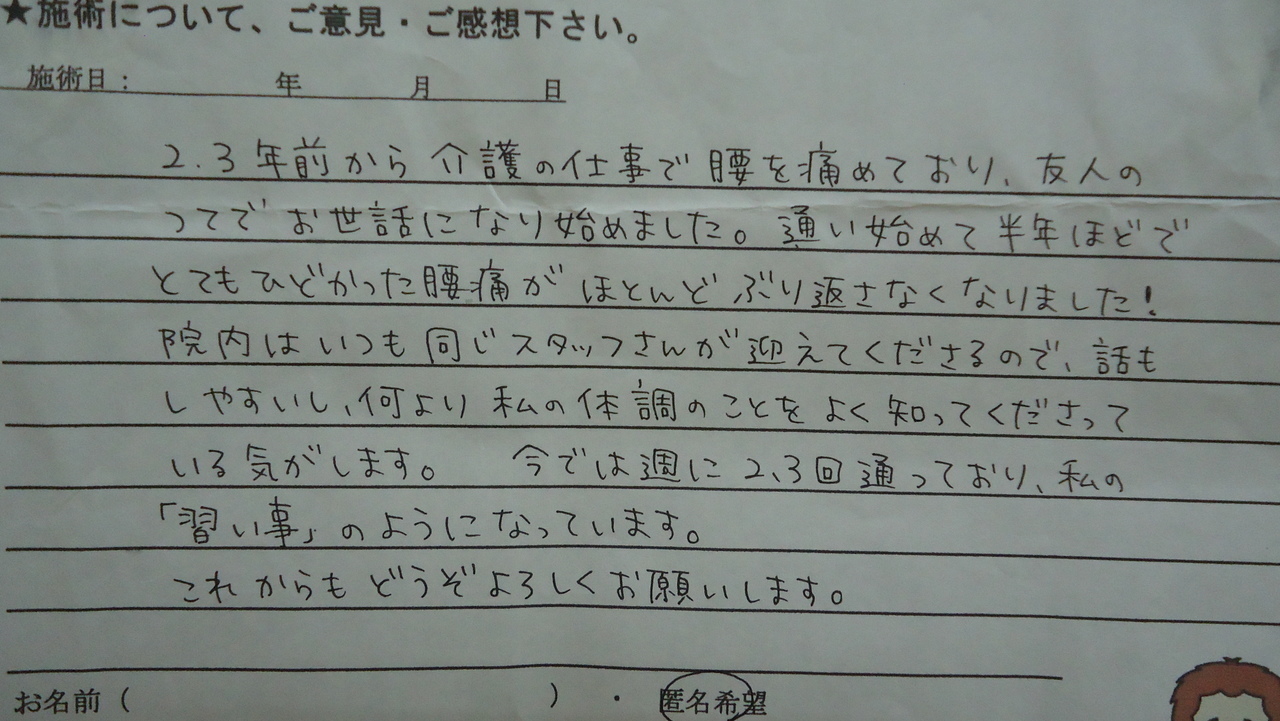 ★施術について、ご意見・ご感想下さい。
施術日： 年 月 日
2.3年前から介護の仕事で腰を痛めており、友人の
つてでお世話になり始めました。通い始めて半年ほどで
とてもひどかった腰痛がほとんどぶり返さなくなりました!
院内はいつも同じスタッフさんが迎えてくださるので、話も
しやすいし、何より私の体調のことをよく知ってくださって
いる気がします。 今では週に2、3回通っており、私の
「習い事」のようになっています。
これからもどうぞよろしくお願いします。
お名前（ ）・ 匿名希望